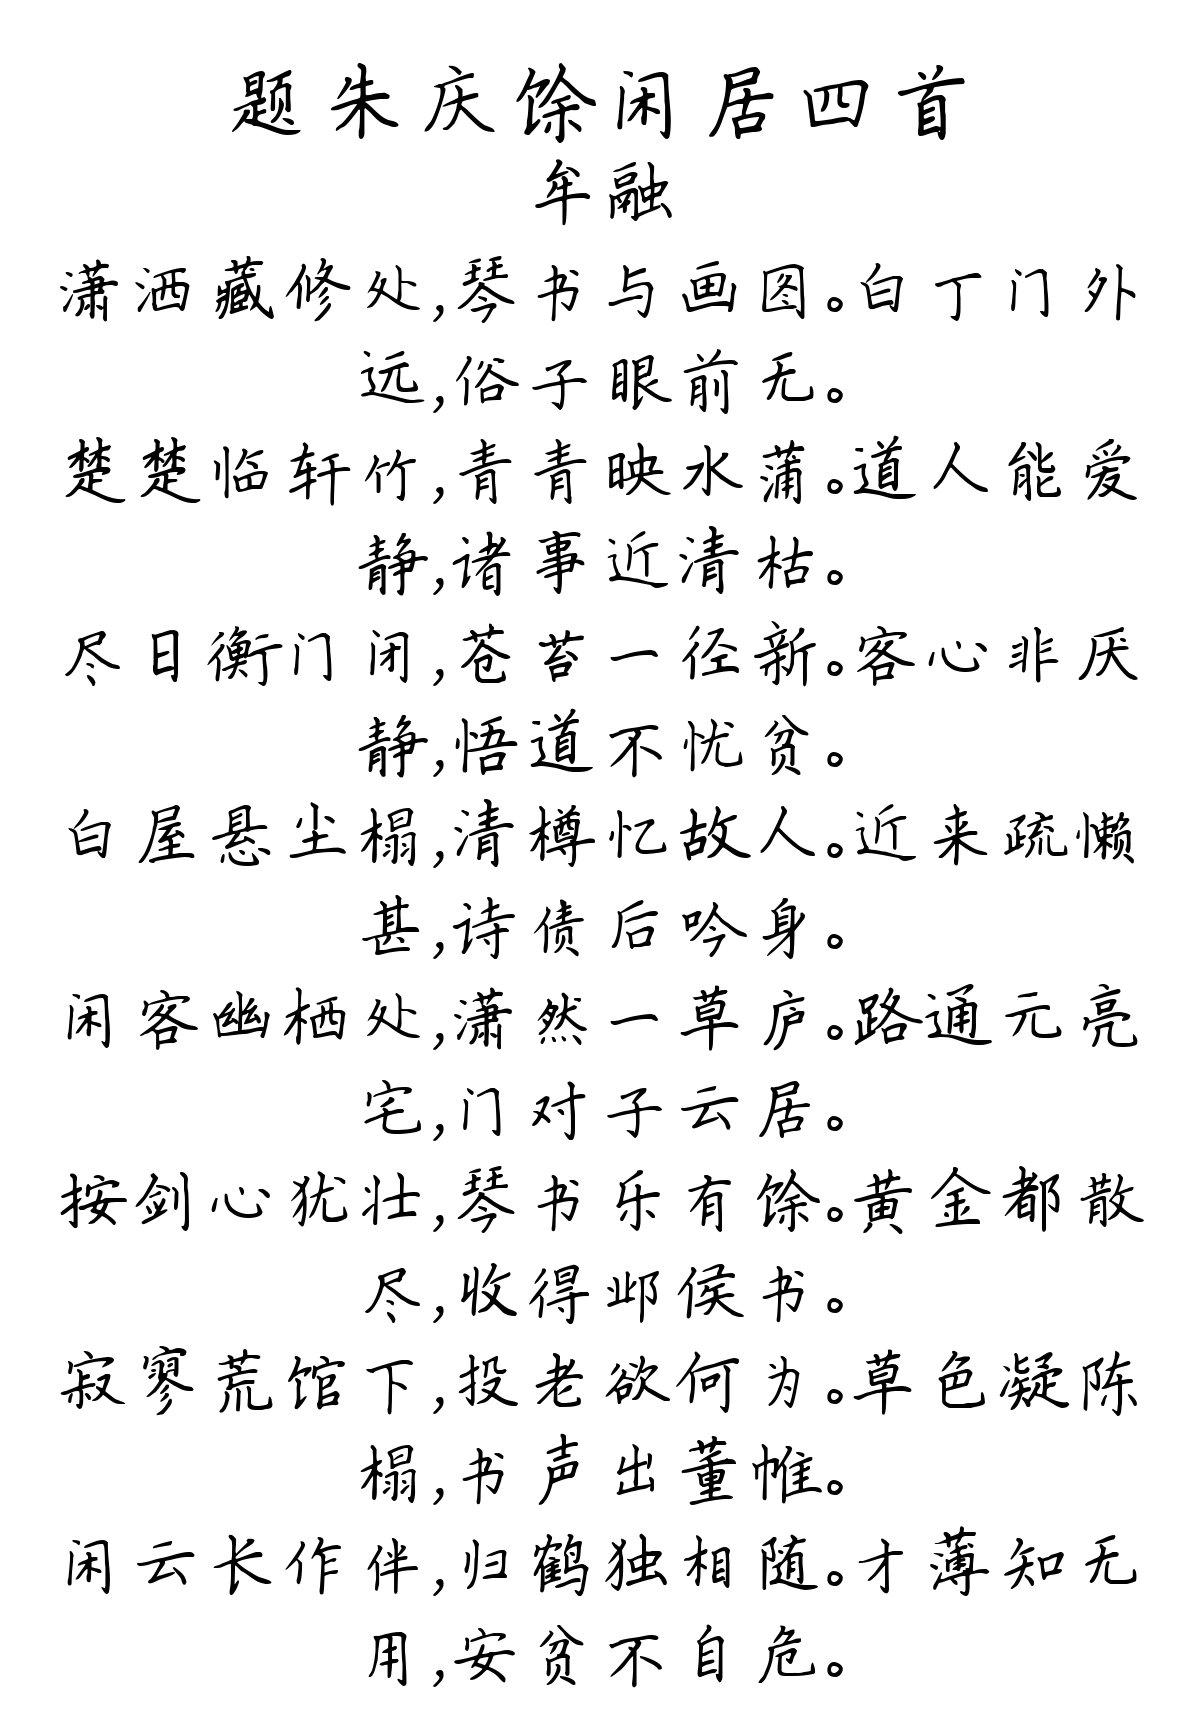 题朱庆馀闲居四首
牟融
潇洒藏修处,琴书与画图。白丁门外
远,俗子眼前无。
楚楚临轩竹,青青映水蒲。道人能爱
静,诸事近清枯。
尽日衡门闭,苍苔一径新。客心非厌
静,悟道不忧贫。
白屋悬尘榻,清樽忆故人。近来疏懒
甚,诗债后吟身。
闲客幽栖处,潇然一草庐。路通元亮
宅,门对子云居。
按剑心犹壮,琴书乐有馀。黄金都散
尽,收得邺侯书。
寂寥荒馆下,投老欲何为。草色凝陈
榻,书声出董帷。
闲云长作伴,归鹤独相随。才薄知无
用,安贫不自危。